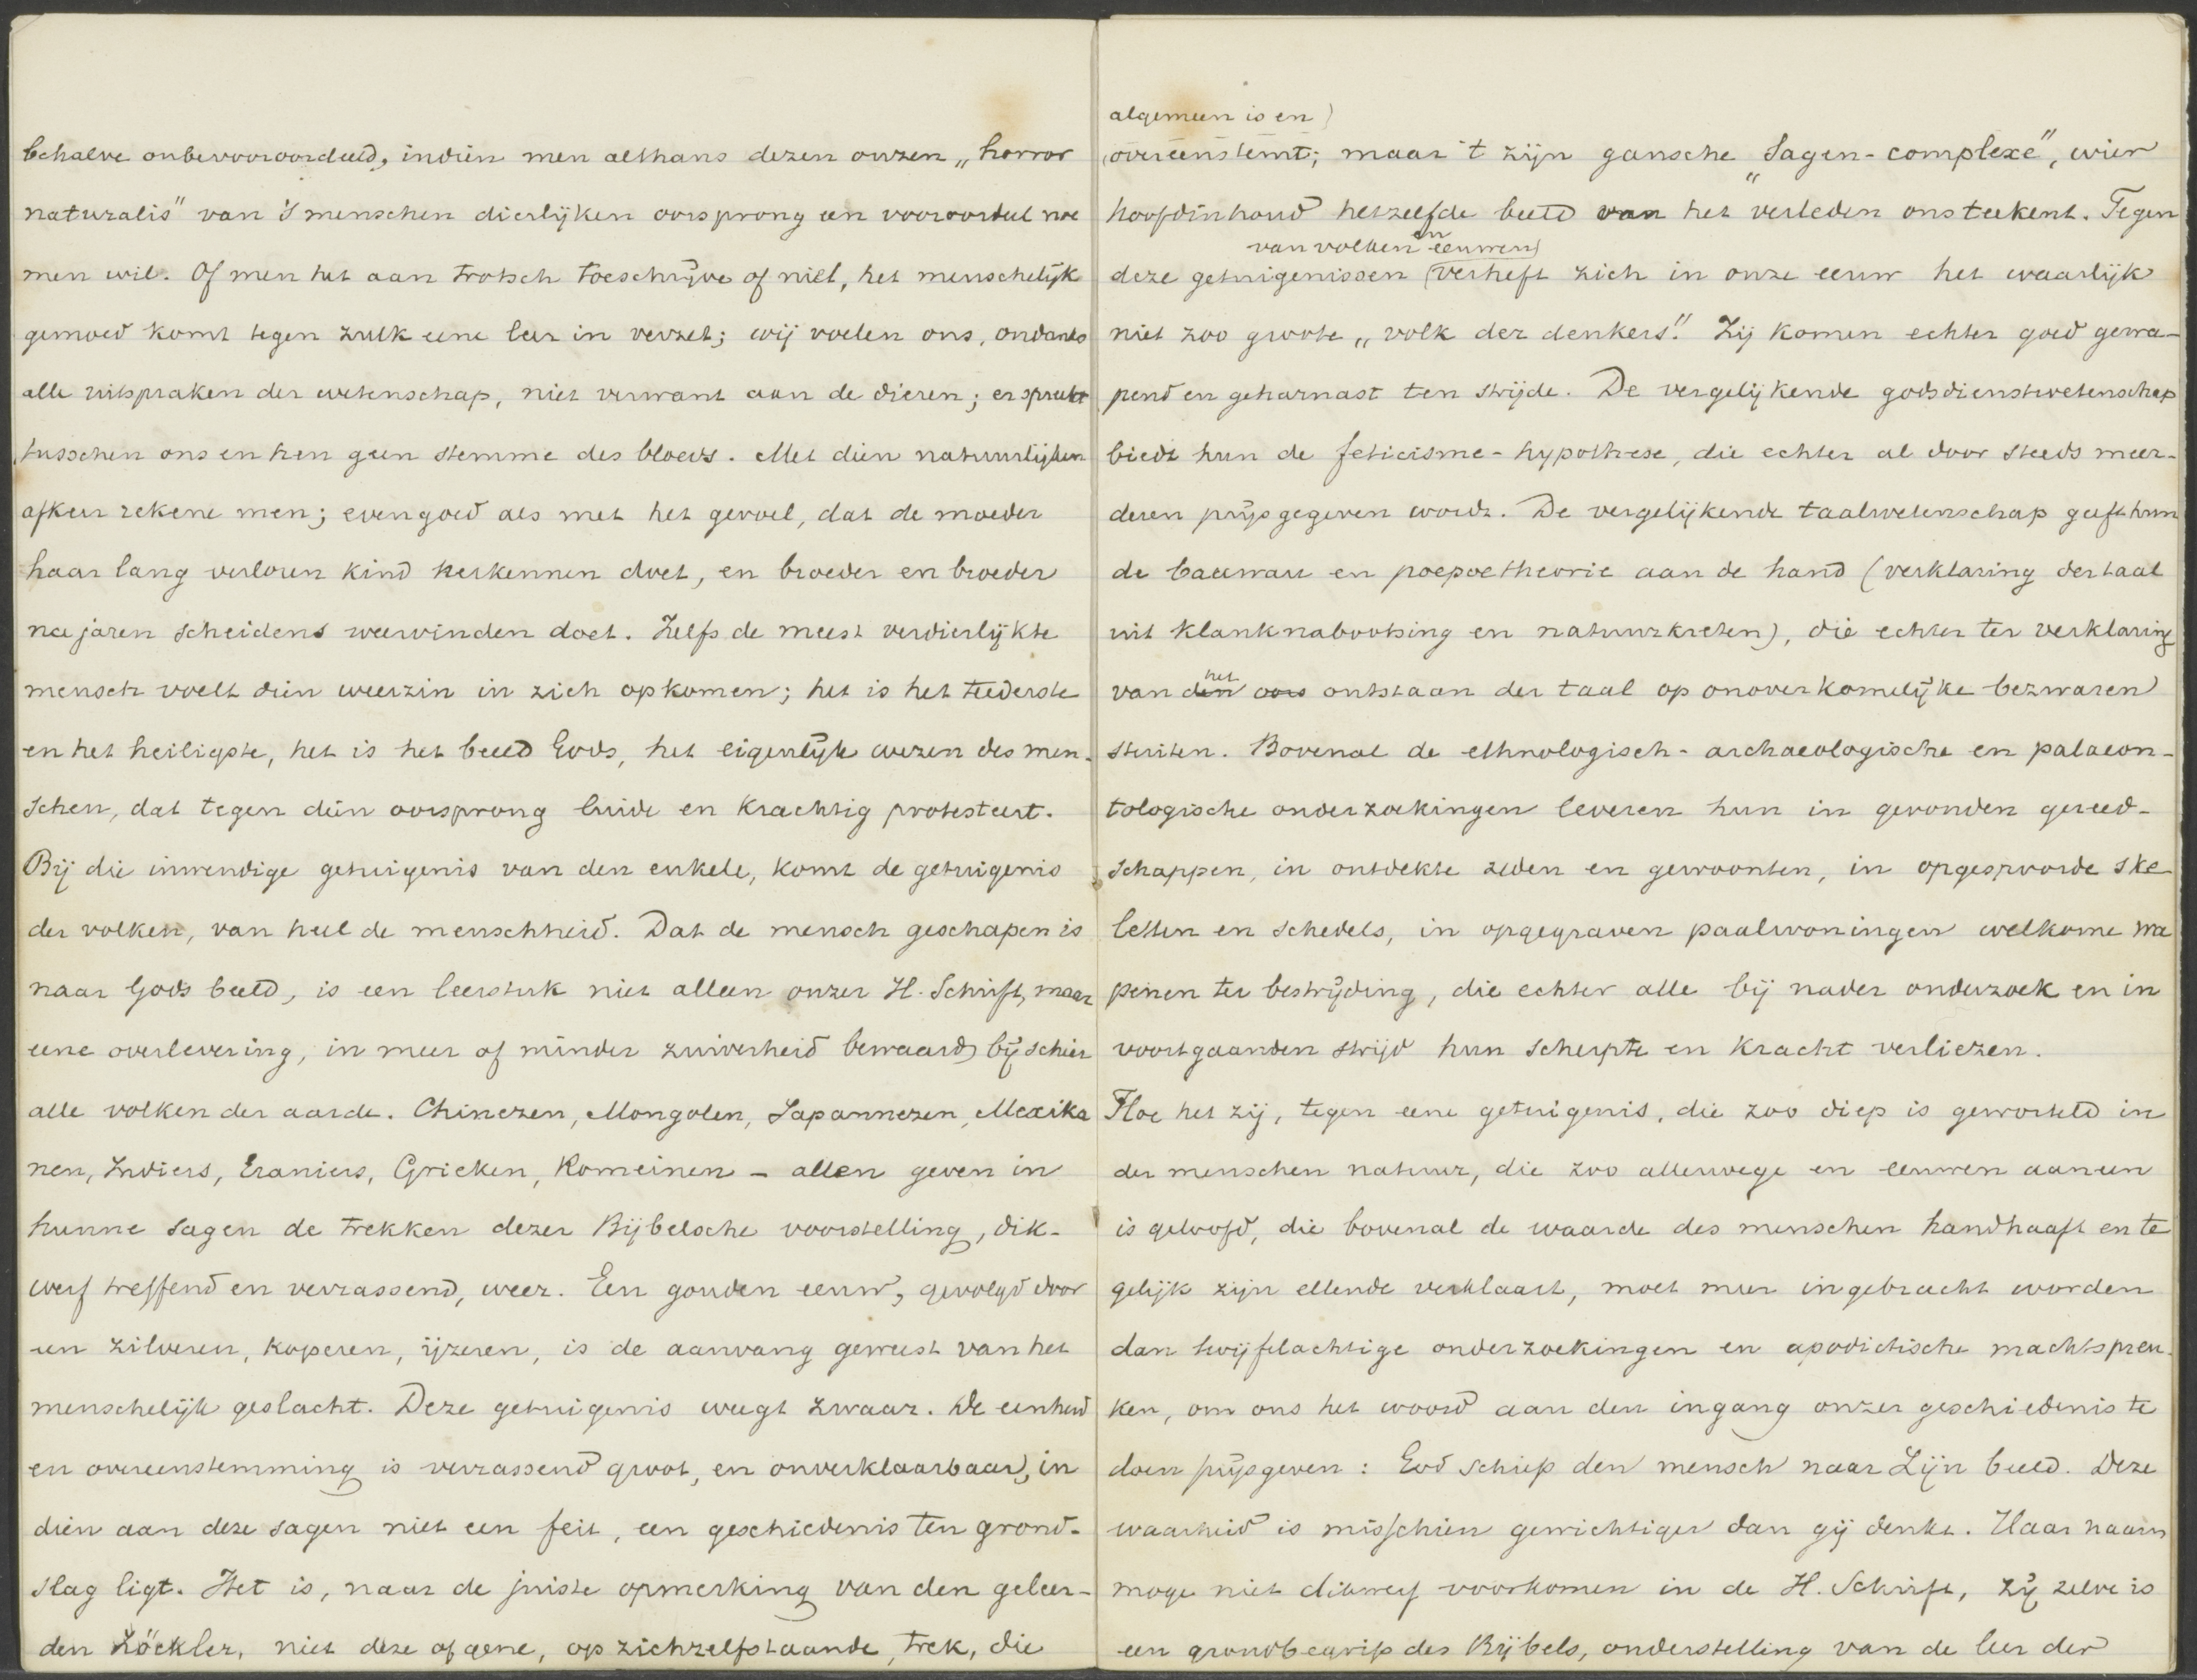 behalve onbevooroordeeld, indien men althans dezen onzen „horror
naturalis" van 's menschen dierlijken oorsprong een vooroordeel noe
men wil. Of men het aan trotsch toeschrijve of niet, het menschelijk
gemoed komt tegen zulk eene leer in verzet; wij voelen ons, ondanks
alle uitspraken der wetenschap, niet verwant aan de dieren; er spreekt
tusschen ons en hen geen stemme des bloeds. Met dien natuurlijken
afkeer rekene men; evengoed als met het gevoel, dat de moeder
haar lang verloren kind herkennen doet, en broeder en broeder
na jaren scheidens weervinden doet. Zelfs de meest verdierlijkte
mensch voelt dien weerzin in zich opkomen; het is het teederste
en het heiligste, het is het beeld Gods, het eigenlijke wezen des men-
schen, dat tegen dien oorsprong luide en krachtig protesteert.
Bij die inwendige getuigenis van den enkele, komt de getuigenis
der volken, van heel de menschheid. Dat de mensch geschapen is
naar Gods beeld, is een leerstuk niet alleen onzer H. Schrift, maar
eene overlevering, in meer of minder zuiverheid bewaard bij schier
alle volken der aarde. Chinezen, Mongolen, Japannezen, Mexika
nen, Indiers, Eraniers, Grieken, Romeinen – allen geven in
hunne sagen de trekken dezer Bijbelsche voorstelling, dik-
werf treffend en verrassend, weer. Een gouden eeuw, gevolgd door
een zilveren, koperen, ijzeren, is de aanvang geweest van het
menschelijk geslacht. Deze getuigenis weegt zwaar. De eenheid
en overeenstemming is verrassend groot, en onverklaarbaar, in
dien aan deze sagen niet een feit, een geschiedenis ten grond-
slag ligt. Het is, naar de juiste opmerking van den geleer-
den Zöckler, niet deze of gene, op zichzelfstaande, trek, die
algemeen is en
overeenstemt; maar 't zijn gansche „Sagen-complexe", wier
hoofdinhoud hetzelfde beeld van het verleden ons teekent. Tegen
van volken en eeuwen
deze getuigenissen verheft zich in onze eeuw het waarlijk
niet zoo groote „volk der denkers". Zij komen echter goed gewa-
pend en geharnast ten strijde. De vergelijkende godsdienstwetenschap
biedt hun de feticisme-hypothese, die echter al door steeds meer-
deren prijsgegeven wordt. De vergelijkende taalwetenschap geeft hun
de bauwau en poepoetheorie aan de hand (verklaring der taal
uit klanknabootsing en natuurkreten), die echter ter verklaring
het
van den oors ontstaan der taal op onoverkomelijke bezwaren
stuiten. Bovenal de ethnologisch-archaeologische en palaeon-
tologische onderzoekingen leveren hun in gevonden gereed-
schappen, in ontdekte zeden en gewoonten, in opgespoorde ske
letten en schedels, in opgegraven paalwoningen welkome wa
penen ter bestrijding, die echter alle bij nader onderzoek en in
voortgaanden strijd hun scherpte en kracht verliezen.
Hoe het zij, tegen eene getuigenis, die zoo diep is geworteld in
der menschen natuur, die zoo allerwege en eeuwen aaneen
is geloofd, die bovenal de waarde des menschen handhaaft en te
gelijk zijn ellende verklaart, moet meer ingebracht worden
dan twijfelachtige onderzoekingen en apodictische machtspreu-
ken, om ons het woord aan den ingang onzer geschiedenis te
doen prijsgeven: God schiep den mensch naar Zijn beeld. Deze
waarheid is misschien gewichtiger dan gij denkt. Haar naam
moge niet dikwerf voorkomen in de H. Schrift, zij zelve is
een grondbegrip des Bijbels, onderstelling van de leer der